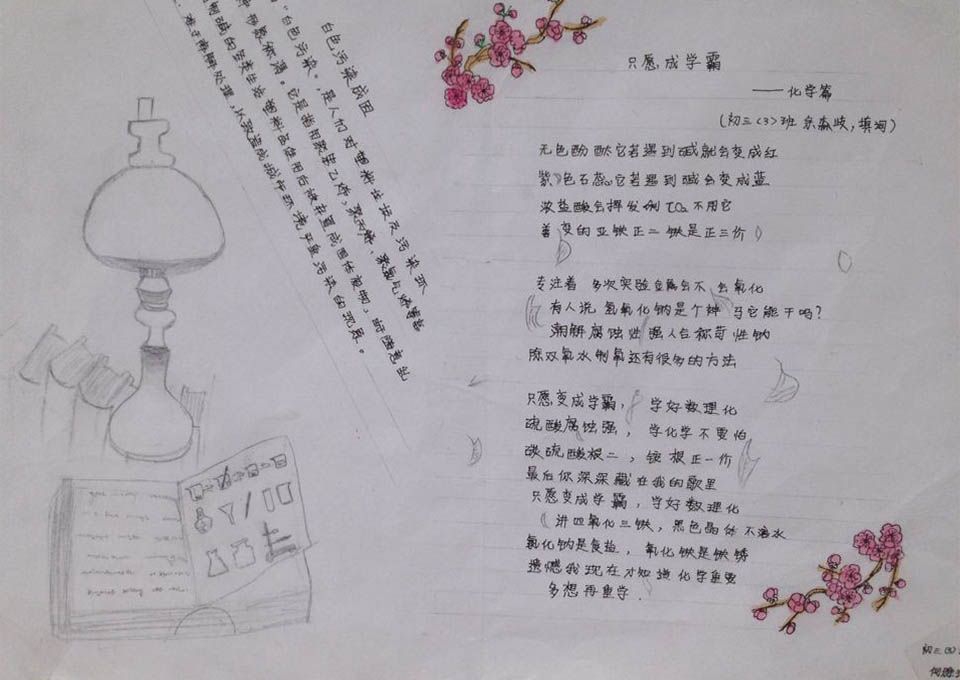 白色污染成因
"白色污染",是人们对塑料垃圾污染环
它是指用聚苯乙烯、聚丙烯、聚氯乙烯等高
塑料品使用后被弃置成固体废物,由于随意乱
难于降解处理,以致造成城市环境严重污染的现象。
只愿,成学霸
——化学篇
(初三(3)班 填词)
无色酚酞它若遇到碱就会变成红
紫色石蕊它若遇到碱会变成蓝
浓盐酸会挥发制CO₂不用它
善变的亚铁正二铁是正三价
专注着 多次实验金属会不会氧化
有人说氢氧化钠是个神马它能干吗?
潮解腐蚀性强人台称苛性钠
除双氧水制氧还有很多的方法
只愿变成学霸, 学好数理化
硫酸腐蚀强, 学化学不要怕
碳硫酸根二, 铵根正一价
最后你深深藏在我的歌里
只愿变成学霸, 学好数理化
讲四氧化三铁, 黑色晶体不溶水
氯化钠是食盐, 氧化铁是铁锈
遗憾我现在才知道化学重要
多想再重学.
初三(3)